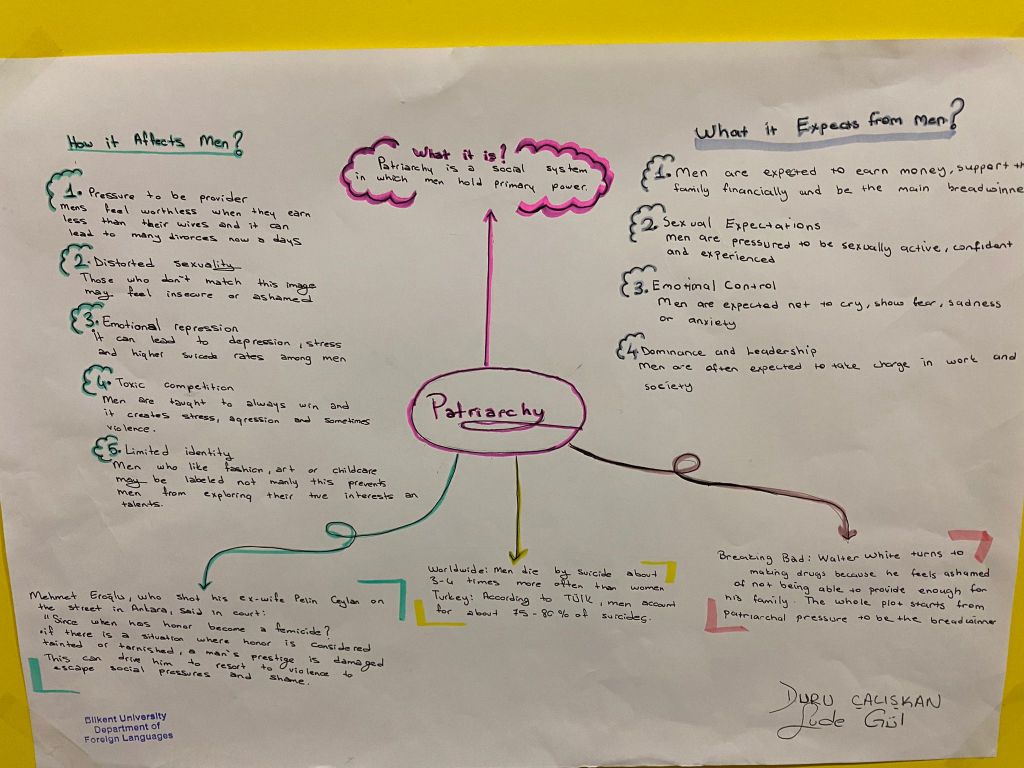 How it Affects Men?
1. Pressure to be provider
mens feel worthless when they earn
less than their wives and it can
lead to many divorces now a days
2. Distorted sexuality
Those who don't match this image
may feel insecure or ashamed
3. Emotional repression
it can lead to depression, stress
and higher suicide rates among men
4. Toxic competition
Men are taught to always win and
it creates stress, agression and sometimes
violence.
5. Limited identity
Men who like fashion, art or childcare
may be labeled not manly this prevents
men from exploring their true interests an
talents.
What it is?
Patriarchy is a social system
in which men hold primary power.
What it Expects from Men?
1. Men are expected to earn money, support th
family financially and be the main breadwinne
2. Sexual Expectations
men are pressured to be sexually active, confident
and experienced
3. Emotional Control
Men are expected not to cry, show fear, sadness
or anxiety
4. Dominance and Leadership
Men are often expected to take charge in work and
society
Patriarchy
Mehmet Eroğlu, who shot his ex-wife Pelin Ceylan on
the street in Ankara, said in court:
"Since when has honor become a femicide?
if there is a situation where honor is considered
tainted or tarnished, a man's prestige is damaged
This can drive him to resort to violence to
escape social pressures and shame.
Worldwide: Men die by suicide about
3-4 times more often than women
Turkey: According to TÜİK, men account
for about 75-80% of suicides.
Breaking Bad: Walter White turns to
making drugs because he feels ashamed
of not being able to provide enough for
his family. The whole plot starts from
patriarchal pressure to be the breadwinner
DURU ÇALIŞKAN
Gül
Bilkent University
Department of
Foreign Languages